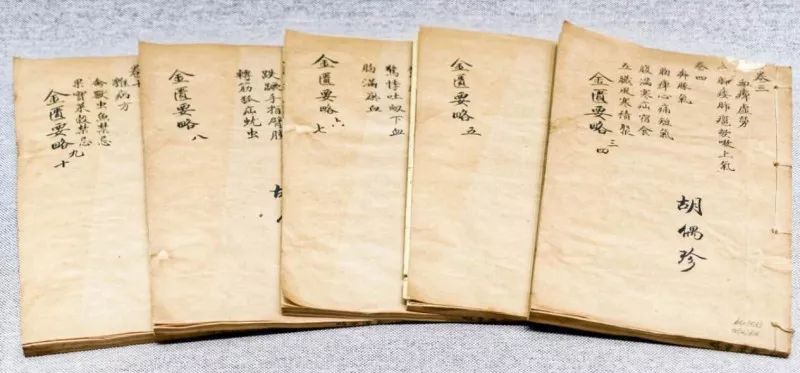 卷三
血痺虛勞
肺痿肺癰欬嗽上氣
卷四
奔豚氣
胸痺心痛短氣
腹滿寒疝宿食
五臟風寒積聚
金匱要略 三四
胡偶珍
金匱要略 五
驚悸吐衄下血
胸滿瘀血
金匱要略 六七
趺蹶手指臂腫
轉筋狐疝蚘虫
金匱要略 八
胡
雜病方
禽獸虫魚禁忌
果實菜穀禁忌
金匱要略 九十